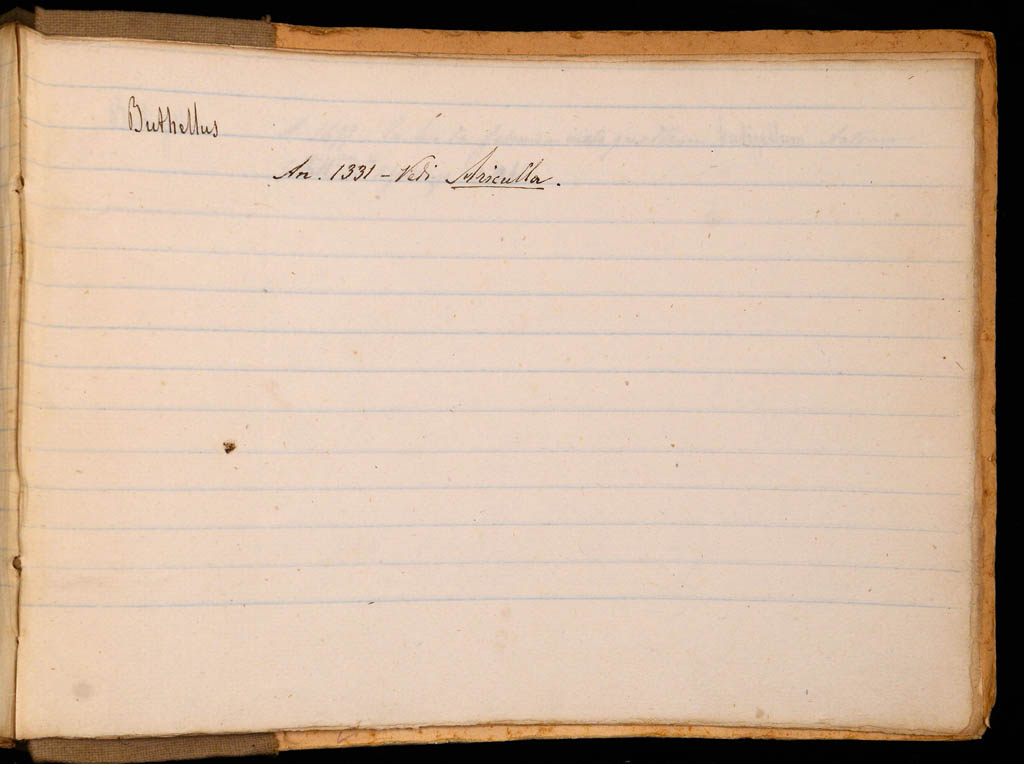 Buthellus
An. 1331 - Vedi Ariculla.